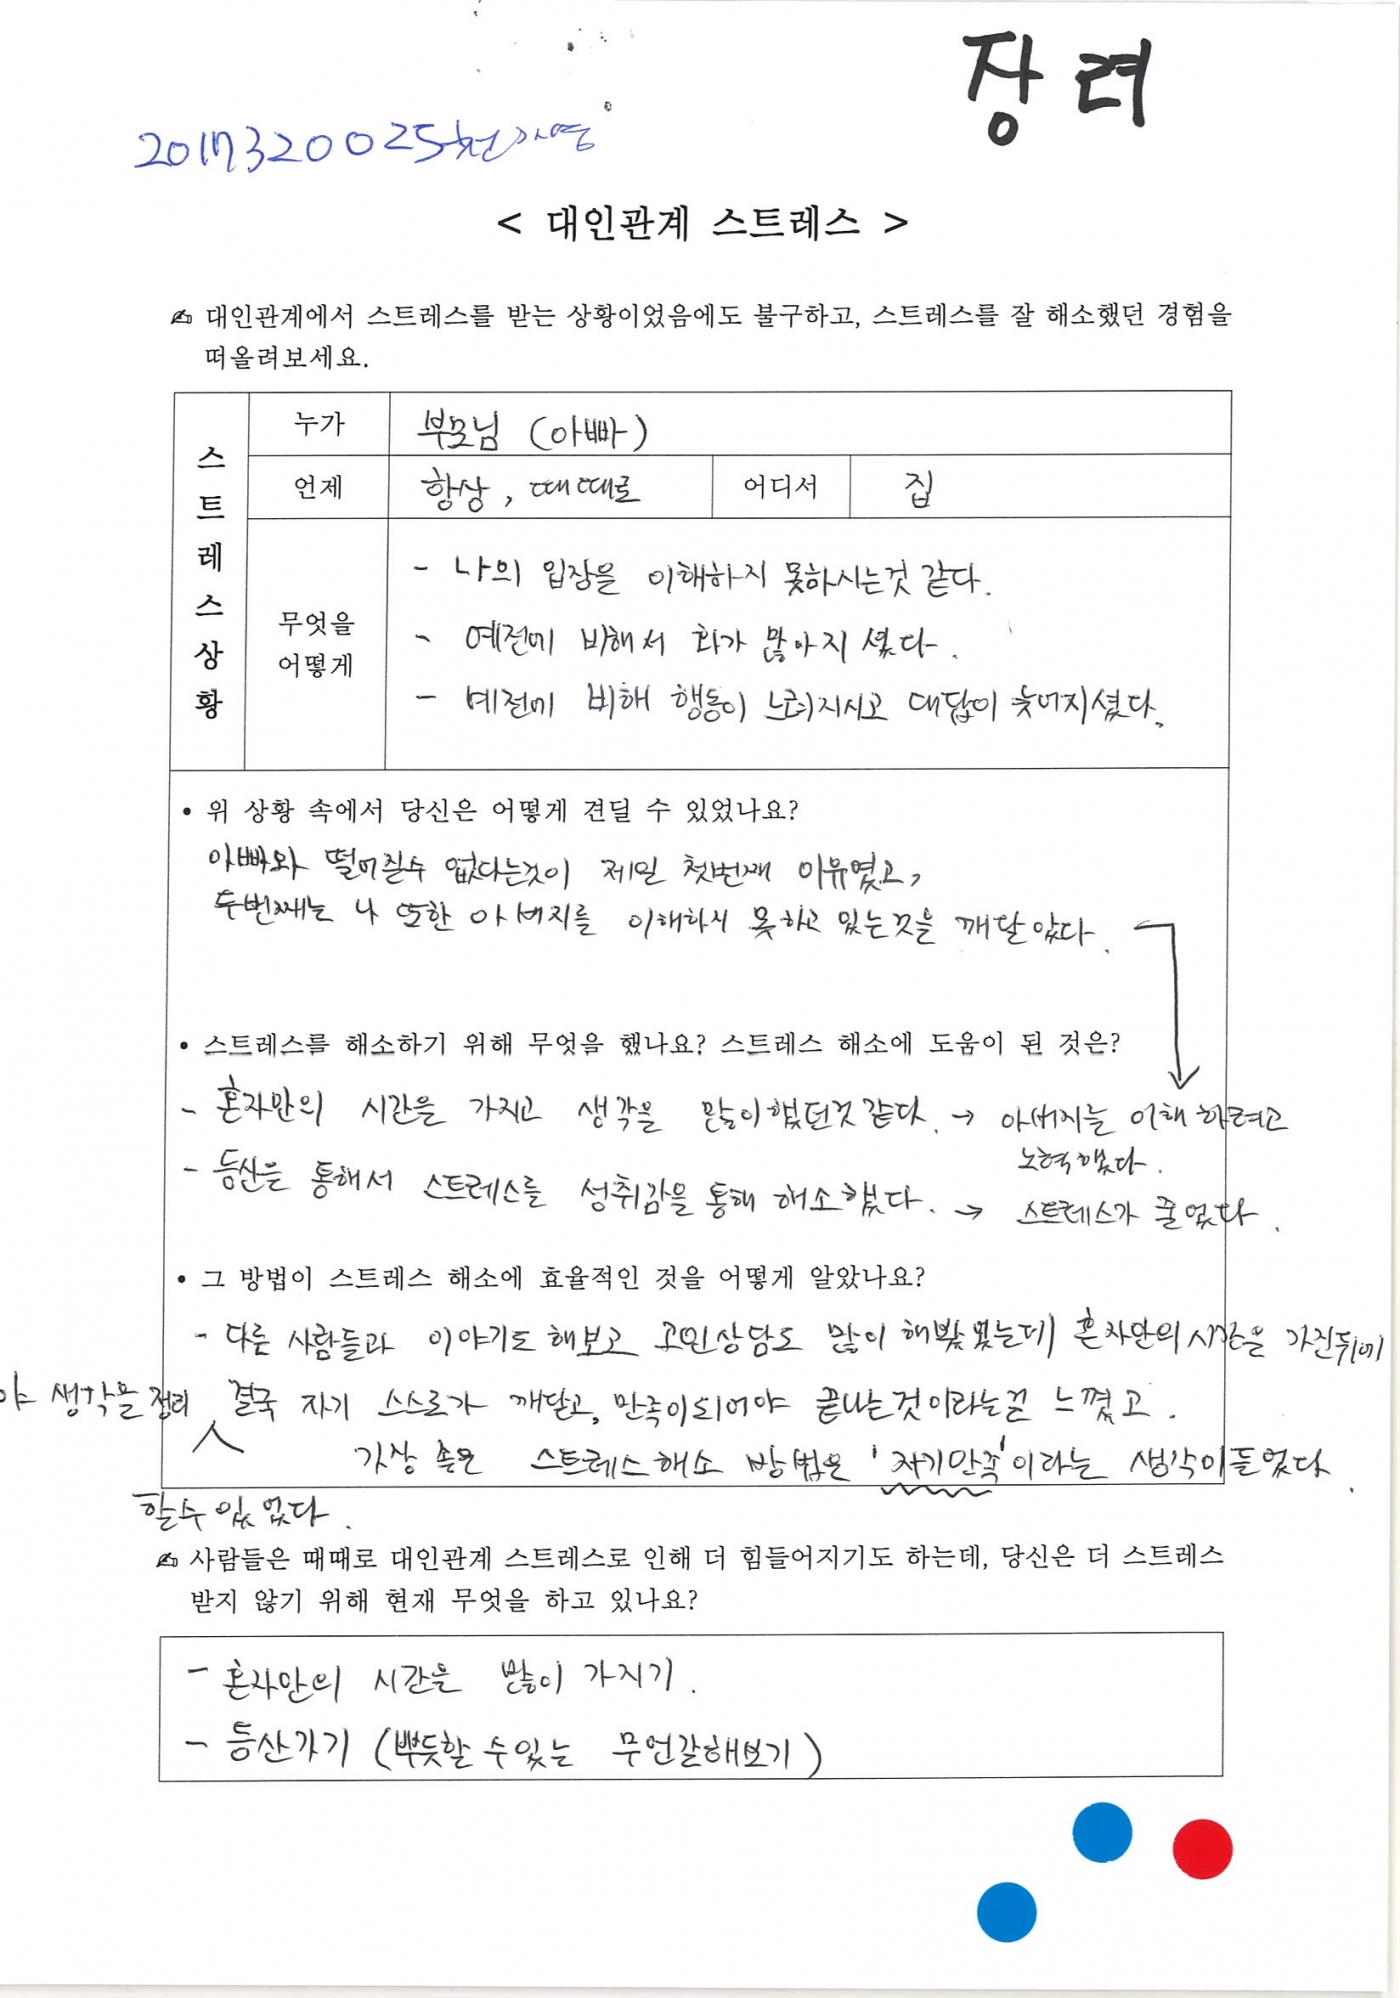 장려
2017320025 천가영
< 대인관계 스트레스 >
✍ 대인관계에서 스트레스를 받는 상황이었음에도 불구하고, 스트레스를 잘 해소했던 경험을
떠올려보세요.
스트레스상황
누가 부모님 (아빠)
언제 항상, 때때로 어디서 집
무엇을
어떻게
- 나의 입장을 이해하지 못하시는것 같다.
- 예전에 비해서 화가 많아지셨다.
- 예전에 비해 행동이 느려지시고 대답이 늦어지셨다.
• 위 상황 속에서 당신은 어떻게 견딜 수 있었나요?
아빠와 떨어질수 없다는것이 제일 첫번째 이유였고,
두번째는 나 또한 아버지를 이해하지 못하고 있는것을 깨달았다.
• 스트레스를 해소하기 위해 무엇을 했나요? 스트레스 해소에 도움이 된 것은?
- 혼자만의 시간을 가지고 생각을 많이했던것 같다. → 아버지를 이해 하려고
노력했다.
- 등산을 통해서 스트레스를 성취감을 통해 해소했다. → 스트레스가 줄었다.
• 그 방법이 스트레스 해소에 효율적인 것을 어떻게 알았나요?
- 다른 사람들과 이야기도 해보고 고민상담도 많이 해봤었는데 혼자만의 시간을 가진뒤에
야 생각을 정리
할수 있었다.
결국 자기 스스로가 깨닫고, 만족이되어야 끝나는것이라는걸 느꼈고.
가장 좋은 스트레스해소 방법은 '자기만족'이라는 생각이들었다.
✍ 사람들은 때때로 대인관계 스트레스로 인해 더 힘들어지기도 하는데, 당신은 더 스트레스
받지 않기 위해 현재 무엇을 하고 있나요?
- 혼자만의 시간을 많이 가지기.
- 등산가기 (뿌듯할 수있는 무언갈해보기)